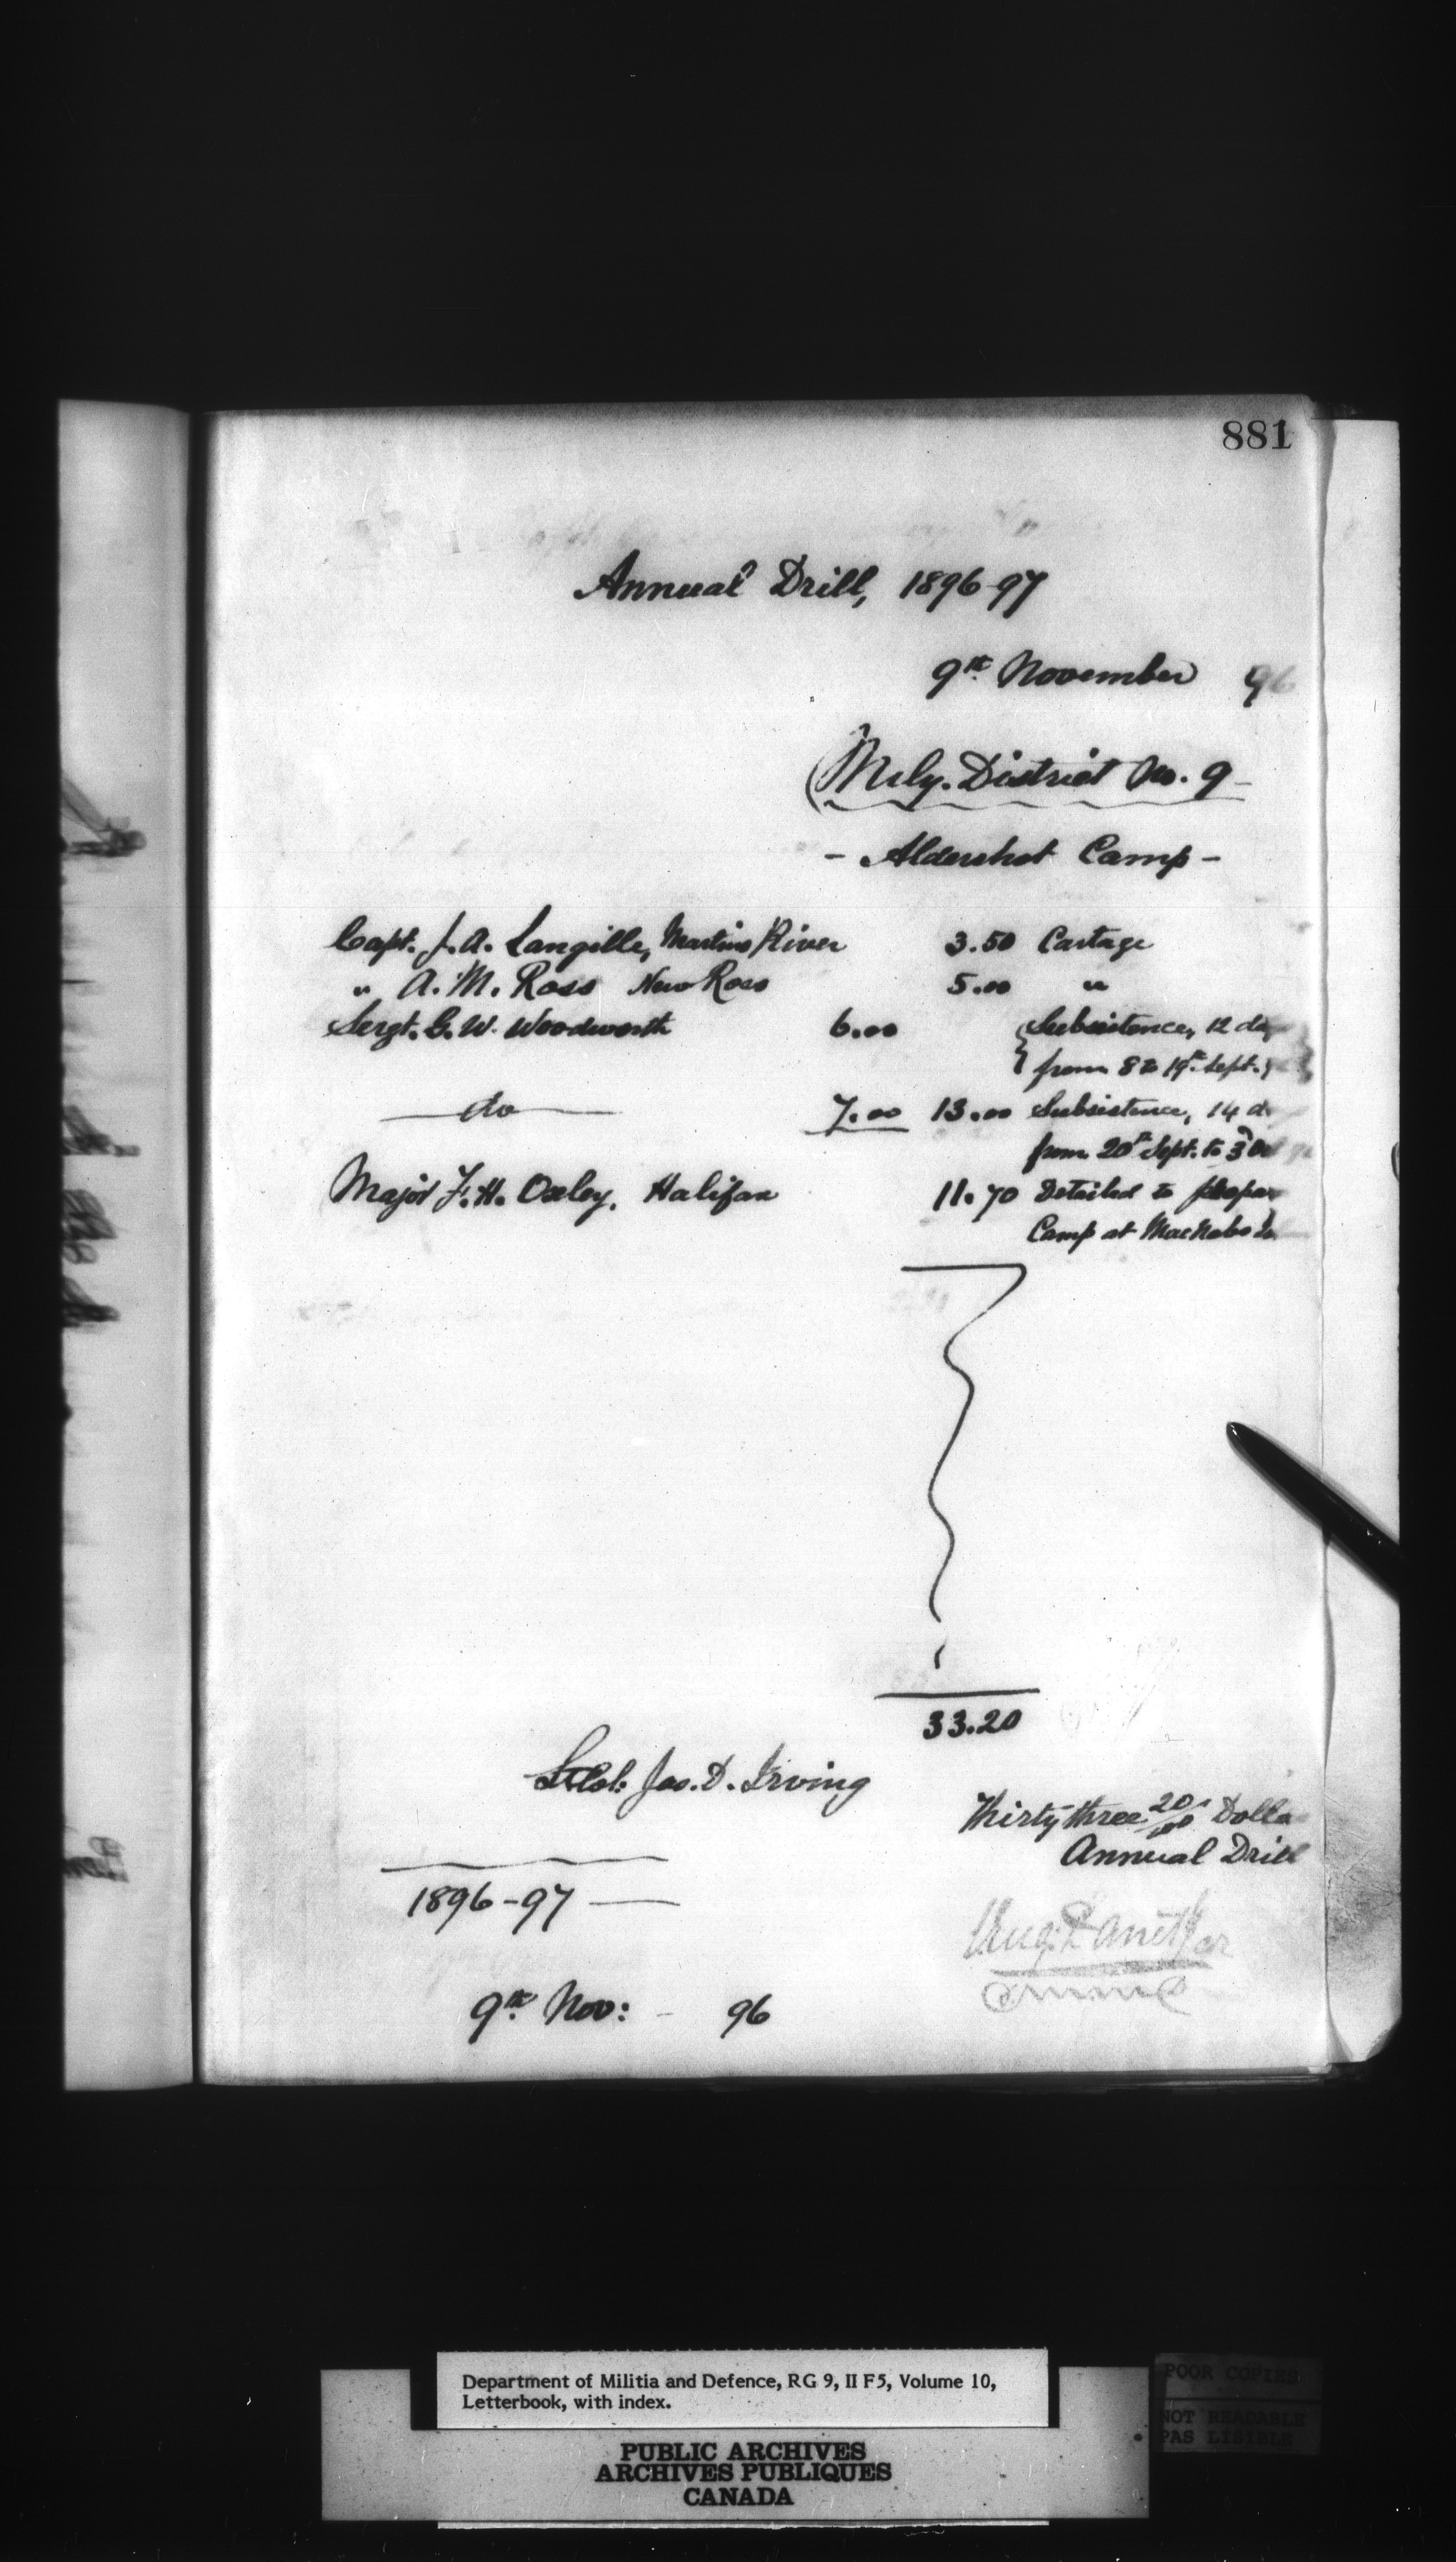 881
Annual Drill, 1896-97
9th November 96
Mily. District No. 9
- Aldershot Camp -
Capt. J. A. Langille, Martins River 3.50 Cartage
" A. M. Ross New Ross 5.00 "
Sergt. G. W. Woodworth 6.00 Subsistence, 12 da
from 8 to 19th Sept.
do 7.00 13.00 Subsistence, 14 d
from 20th Sept. to 3d Oct
Major F. H. Oxley, Halifax 11.70 Detailed to prepar
Camp at MacNabs
33.20
Lt Col: Jas. D. Irving
Thirty three 20/100 Dolla
Annual Drill
1896-97
9th Nov: - 96
Department of Militia and Defence, RG 9, II F5, Volume 10,
Letterbook, with index.
PUBLIC ARCHIVES
ARCHIVES PUBLIQUES
CANADA
POOR COPIES
NOT READABLE
PAS LISIBLE